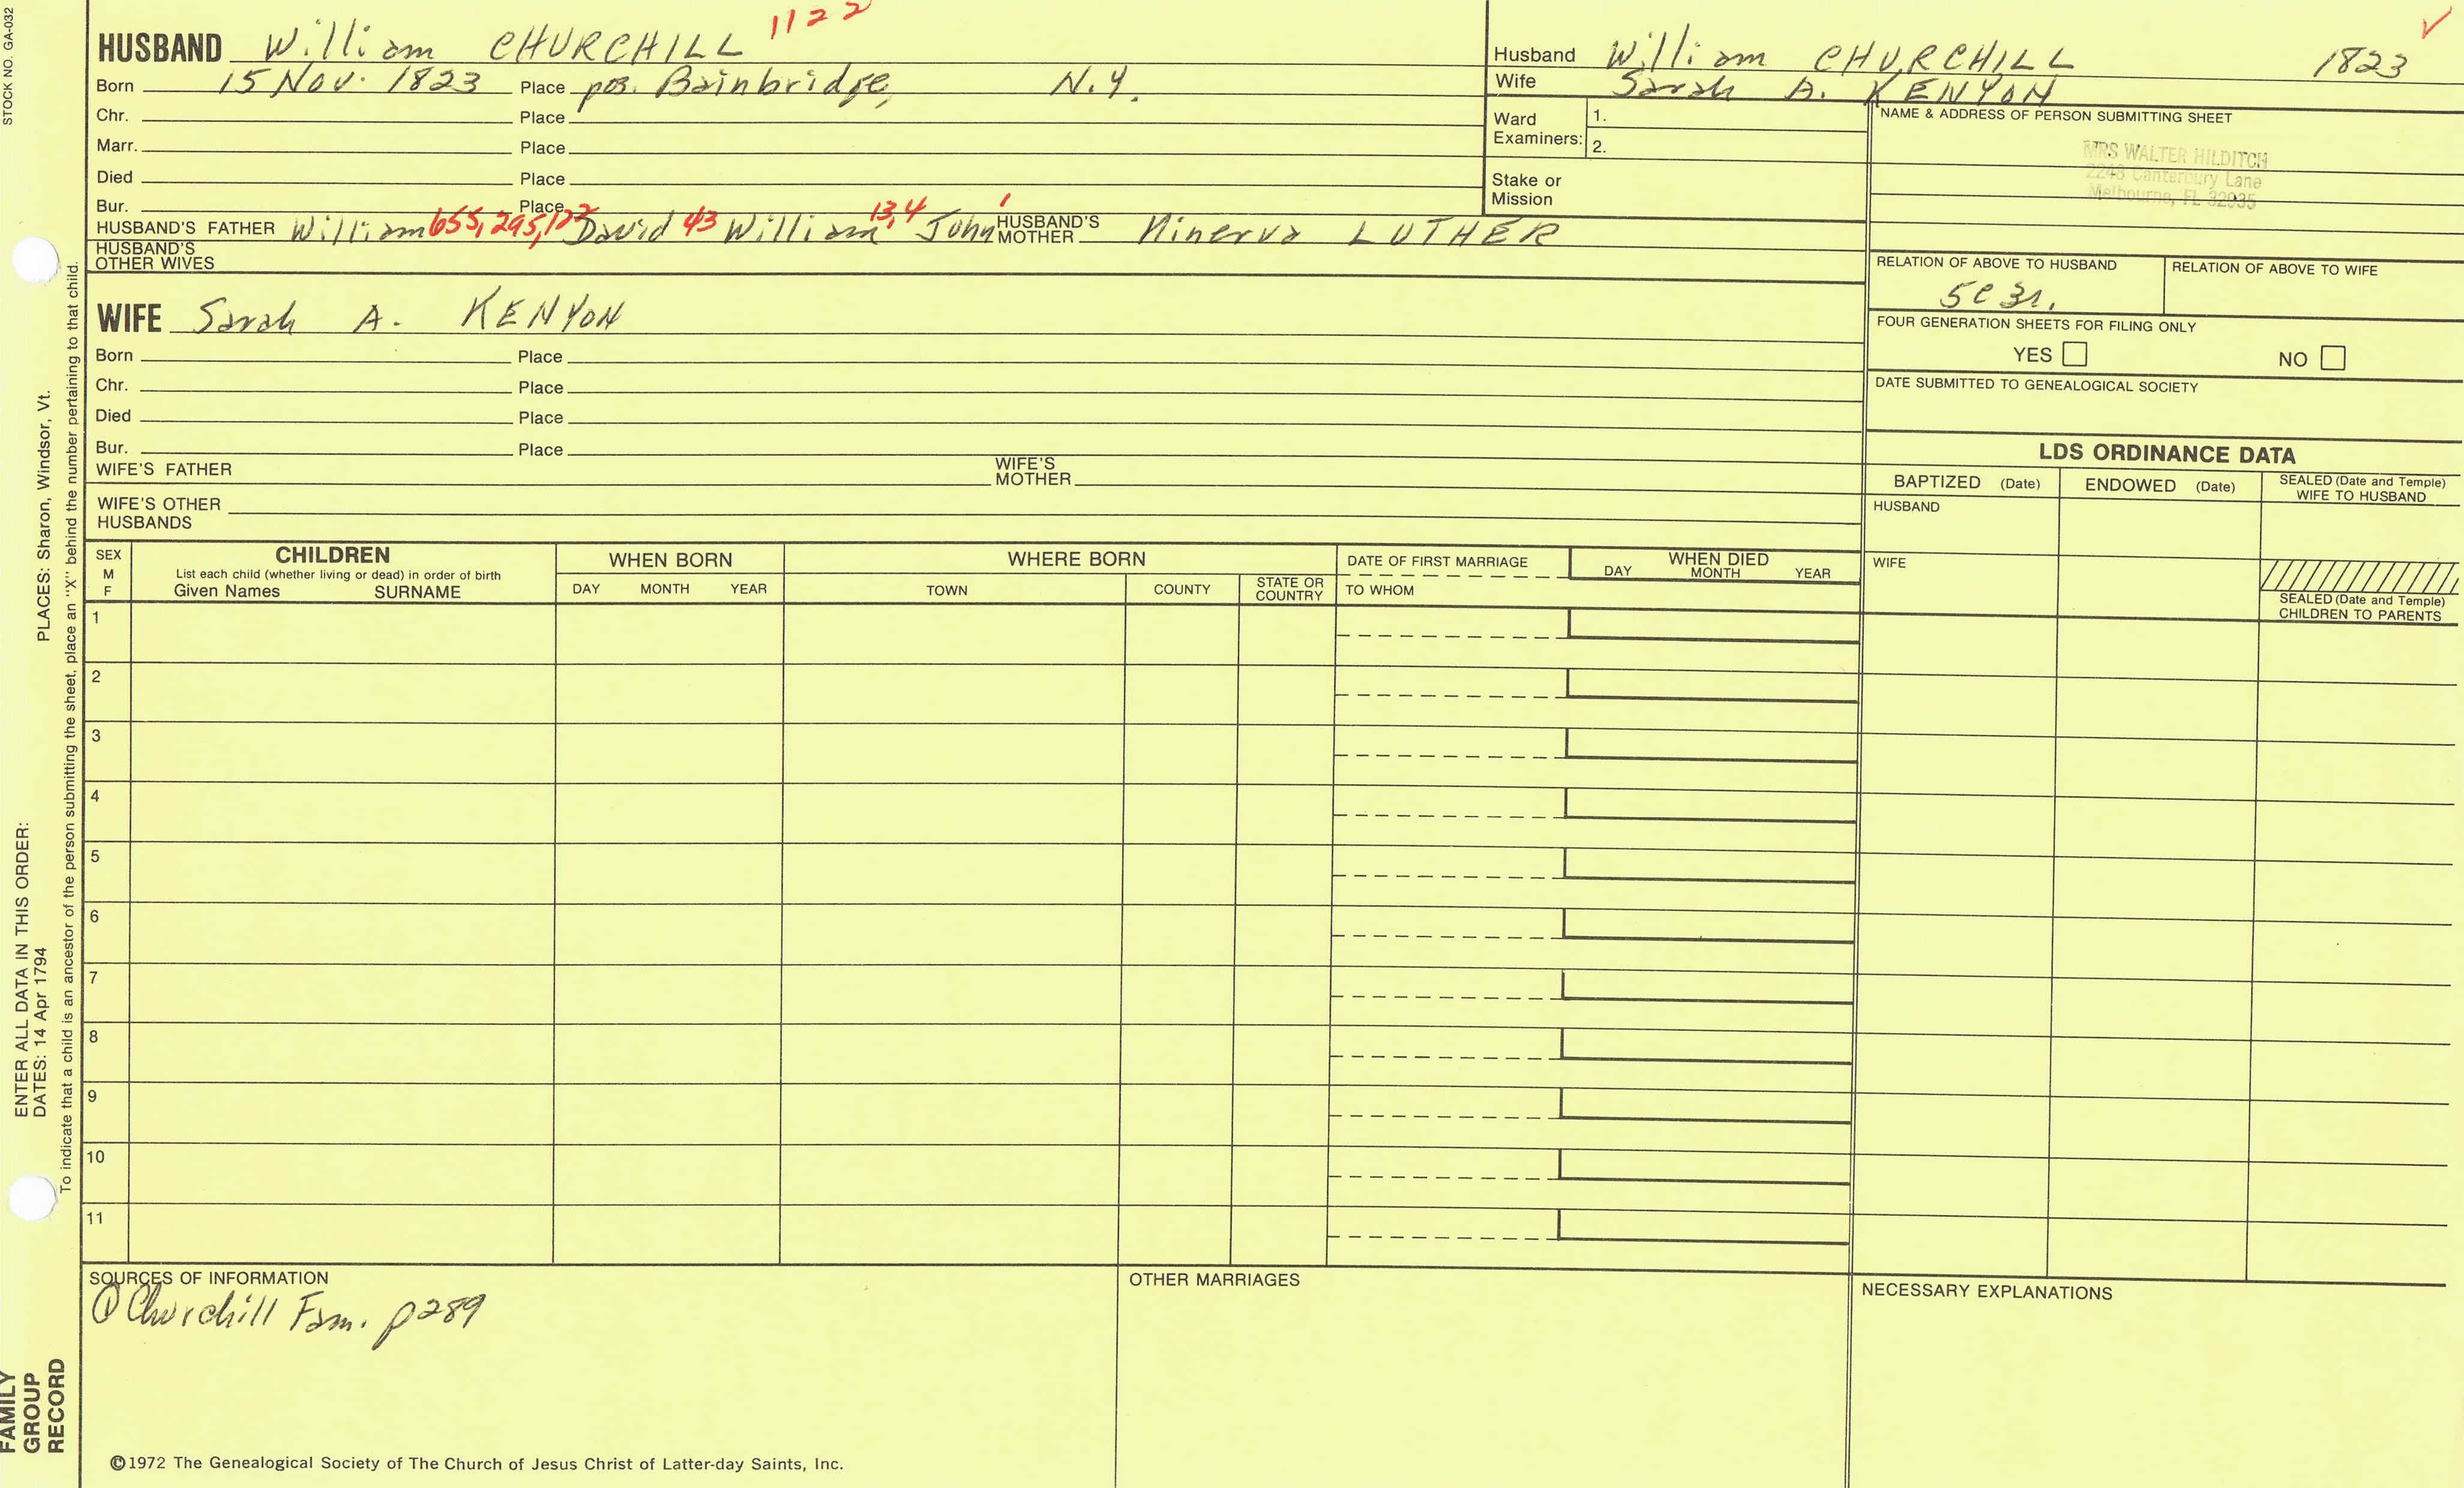 STOCK NO. GA-032
1122
HUSBAND William CHURCHILL
Born 15 Nov. 1823 Place pos. Bainbridge, N.Y.
Chr. Place
Marr. Place
Died Place
Bur. Place
HUSBAND'S FATHER William 655, 295, 122 David 43 William 13, 4 John 1 HUSBAND'S MOTHER Minerva LUTHER
HUSBAND'S OTHER WIVES
WIFE Sarah A. KENYON
Born Place
Chr. Place
Died Place
Bur. Place
WIFE'S FATHER WIFE'S MOTHER
WIFE'S OTHER HUSBANDS
Husband William CHURCHILL 1823
Wife Sarah A. KENYON
Ward Examiners: 1.
2.
Stake or Mission
NAME & ADDRESS OF PERSON SUBMITTING SHEET
MRS WALTER HILDITCH
2248 Canterbury Lane
Melbourne, FL 32935
RELATION OF ABOVE TO HUSBAND RELATION OF ABOVE TO WIFE
5c 3r.
FOUR GENERATION SHEETS FOR FILING ONLY
YES NO
DATE SUBMITTED TO GENEALOGICAL SOCIETY
LDS ORDINANCE DATA
BAPTIZED (Date) ENDOWED (Date) SEALED (Date and Temple) WIFE TO HUSBAND
HUSBAND
WIFE
SEALED (Date and Temple) CHILDREN TO PARENTS
SEX M F
CHILDREN
List each child (whether living or dead) in order of birth
Given Names SURNAME
WHEN BORN
DAY MONTH YEAR
WHERE BORN
TOWN COUNTY STATE OR COUNTRY
DATE OF FIRST MARRIAGE
TO WHOM
WHEN DIED
DAY MONTH YEAR
1
2
3
4
5
6
7
8
9
10
11
SOURCES OF INFORMATION
① Churchill Fam. p289
OTHER MARRIAGES
NECESSARY EXPLANATIONS
©1972 The Genealogical Society of The Church of Jesus Christ of Latter-day Saints, Inc.
ENTER ALL DATA IN THIS ORDER:
DATES: 14 Apr 1794
PLACES: Sharon, Windsor, Vt.
To indicate that a child is an ancestor of the person submitting the sheet, place an "X" behind the number pertaining to that child.
FAMILY
GROUP
RECORD